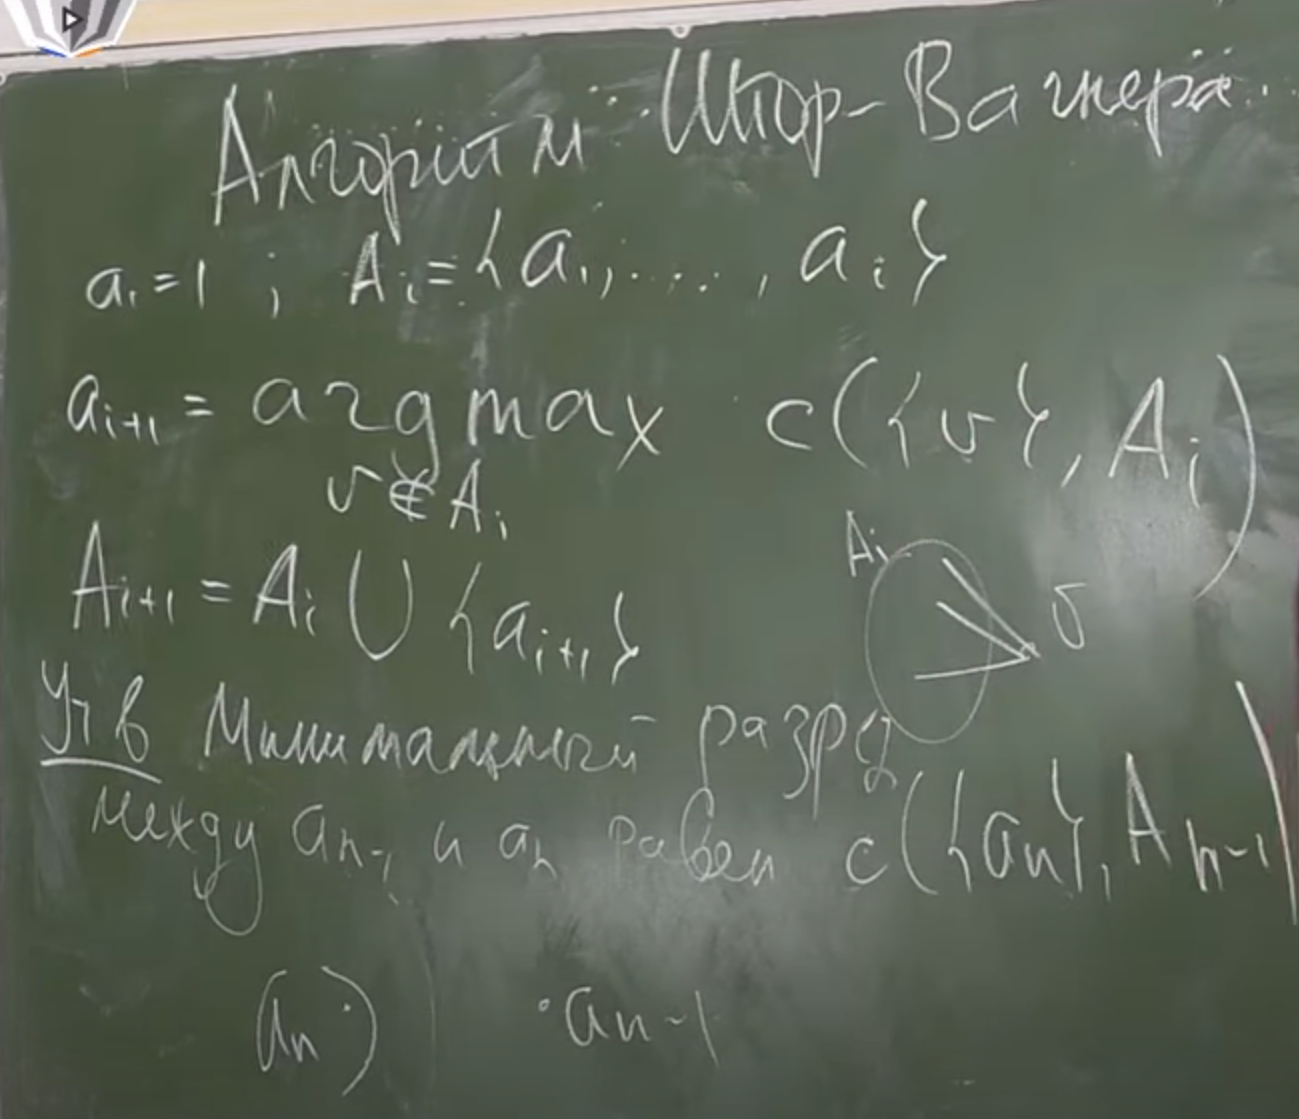 Алгоритм Штор-Вагнера
a₁=1 ; Aᵢ={a₁,....,aᵢ}
aᵢ₊₁ = argmax c({v}, Aᵢ)
v∉Aᵢ
Aᵢ
v
Aᵢ₊₁ = Aᵢ ∪ {aᵢ₊₁}
Утв Минимальный разрез
между aₙ₋₁ и aₙ равен c({aₙ}, Aₙ₋₁)
aₙ aₙ₋₁